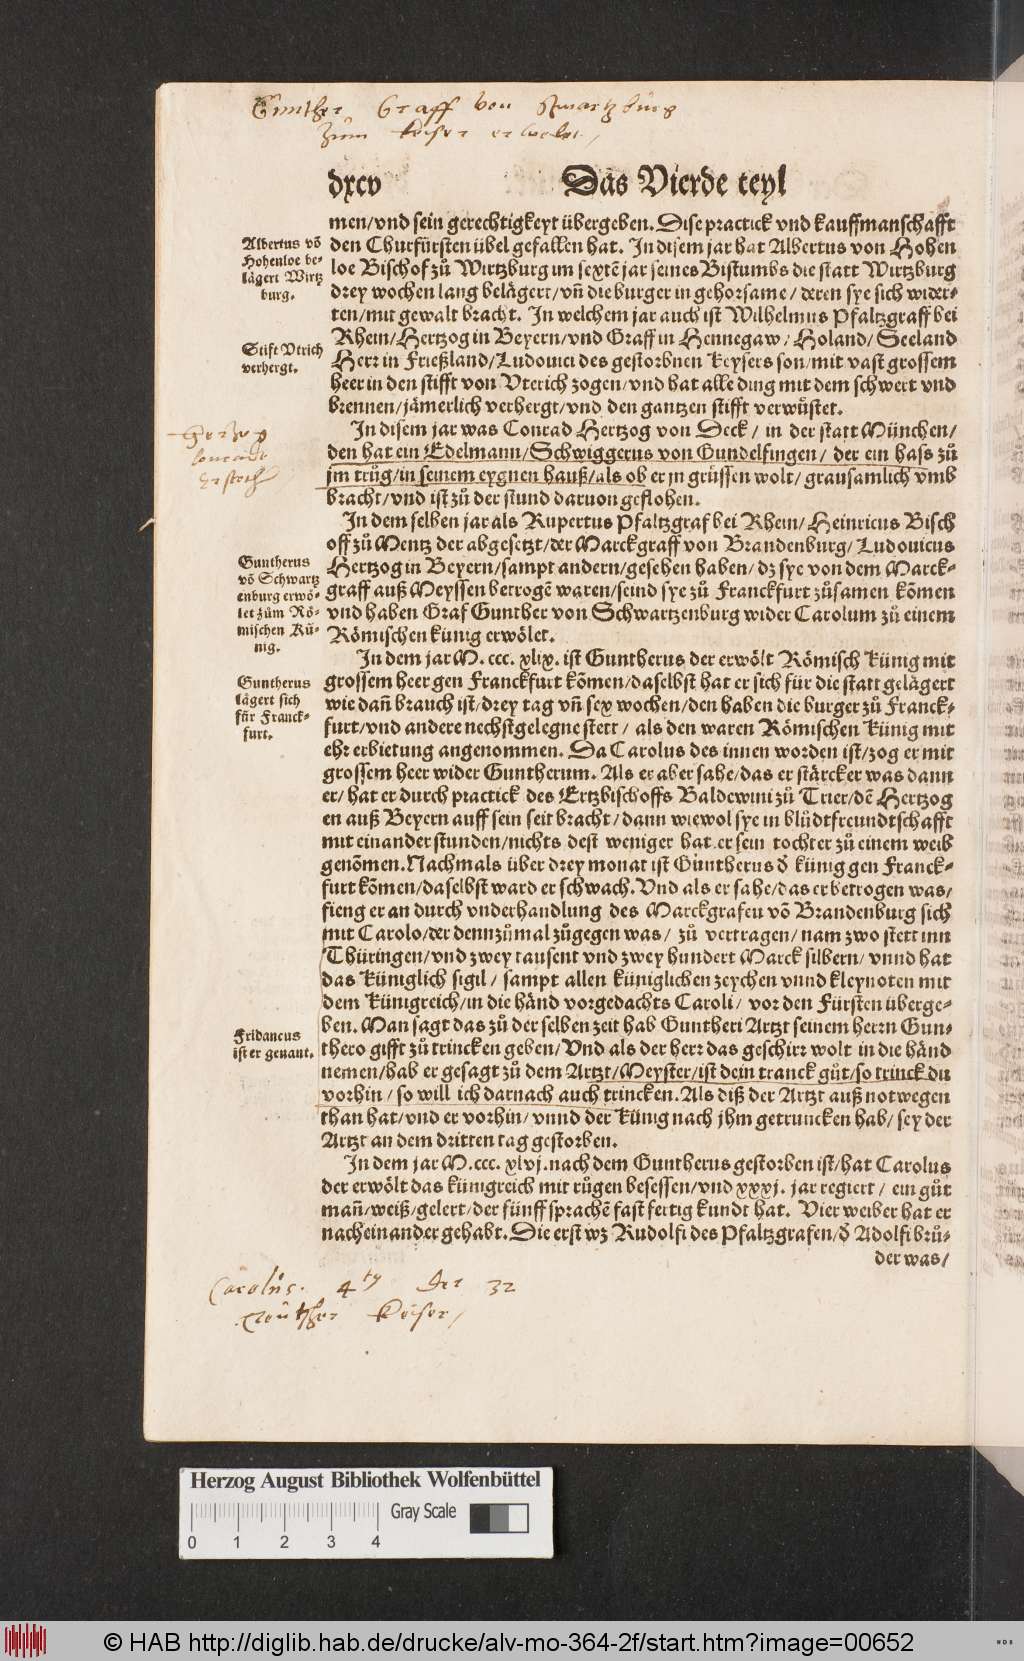 Günther Graff von Swartzburg
zům Keiser erwelet /
dxcv Das Vierde teyl
men/vnd sein gerechtigkeyt übergeben. Dise practick vnd kauffmanschafft
den Churfürsten übel gefallen hat. In disem jar hat Albertus von Hohen
loe Bischof zů Wirtzburg im sextẽ jar seines Bistumbs die statt Wirtzburg
drey wochen lang belägert/vñ die burger in gehorsame/ deren sye sich wider-
ten/mit gewalt bracht. In welchem jar auch ist Wilhelmus Pfaltzgraff bei
Rhein/Hertzog in Beyern/vnd Graff in Hennegaw/Holand/Seeland
Herr in Frießland/Ludouici des gestorbnen Keysers son/mit vast grossem
heer in den stifft von Vterich zogen/vnd hat alle ding mit dem schwert vnd
brennen/jämerlich verhergt/vnd den gantzen stifft verwůstet.
Albertus võ
Hohenloe be-
lägert Wirtz
burg.
Stift Vtrich
verhergt.
In disem jar was Conrad Hertzog von Deck/ in der statt München/
den hat ein Edelmann/Schwiggerus von Gundelfingen/ der ein hass zů
jm trůg/in seinem eygnen hauß/als ob er jn grüssen wolt/ grausamlich vmb
bracht/vnd ist zů der stund daruon geflohen.
Herzog
Conradt
erstoch
In dem selben jar als Rupertus Pfaltzgraf bei Rhein/ Heinricus Bisch
off zů Mentz der abgesetzt/der Marckgraff von Brandenburg/Ludouicus
Hertzog in Beyern/sampt andern/gesehen haben/dz sye von dem Marck-
graff auß Meyssen betrogẽ waren/seind sye zů Franckfurt zůsamen kõmen
vnd haben Graf Gunther von Schwartzenburg wider Carolum zů einem
Römischen künig erwölet.
Guntherus
võ Schwartz
enburg erwö-
let zům Rö-
mischen Kü-
nig.
In dem jar M. ccc. xlix. ist Guntherus der erwölt Römisch Künig mit
grossem heer gen Franckfurt kõmen/daselbst hat er sich für die statt gelägert
wie dañ brauch ist/drey tag vñ sex wochen/den haben die burger zů Franck-
furt/vnd andere nechstgelegne stett/ als den waren Römischen Künig mit
ehrerbietung angenommen. Da Carolus des innen worden ist/zog er mit
grossem heer wider Guntherum. Als er aber sahe/das er stärcker was dann
er/ hat er durch practick des Ertzbischoffs Baldewini zů Trier/dẽ Hertzog
en auß Beyern auff sein seit bracht/dann wiewol sye in blůdtfreundtschafft
mit einander stunden/nichts dest weniger hat er sein tochter zů einem weib
genõmen. Nachmals über drey monat ist Guntherus d̃ künig gen Franck-
furt kõmen/daselbst ward er schwach. Vnd als er sahe/das er betrogen was/
fieng er an durch vnderhandlung des Marckgrafen võ Brandenburg sich
mit Carolo/der dennzůmal zůgegen was/ zů vertragen/nam zwo stett inn
Thüringen/vnd zwey tausent vnd zwey hundert Marck silbern/ vnnd hat
das Küniglich sigil/ sampt allen küniglichen zeychen vnnd kleynoten mit
dem Künigreich/in die händ vorgedachts Caroli/ vor den Fürsten überge-
ben. Man sagt das zů der selben zeit hab Guntheri Artzt seinem herrn Gun-
thero gifft zů trincken geben/Vnd als der herr das geschirr wolt in die händ
nemen/hab er gesagt zů dem Artzt/Meyster/ist dein tranck gůt/so trinck du
vorhin/ so will ich darnach auch trincken. Als diß der Artzt auß notwegen
than hat/vnd er vorhin/ vnnd der Künig nach jhm getruncken hab/ sey der
Artzt an dem dritten tag gestorben.
Guntherus
lägert sich
für Franck-
furt.
Fridancus
ist er genant.
In dem jar M.ccc. xlvj. nach dem Guntherus gestorben ist/hat Carolus
der erwölt das künigreich mit růgen besessen/vnd xxxj. jar regiert/ ein gůt
mañ/weiß/gelert/der fünff sprachẽ fast fertig kundt hat. Vier weiber hat er
nacheinander gehabt. Die erst wz Rudolfi des Pfaltzgrafen/d̃ Adolfi brů-
der was/
Carolus. 4ty der 32
Keiser /
Herzog August Bibliothek Wolfenbüttel
Gray Scale
0 1 2 3 4
© HAB http://diglib.hab.de/drucke/alv-mo-364-2f/start.htm?image=00652